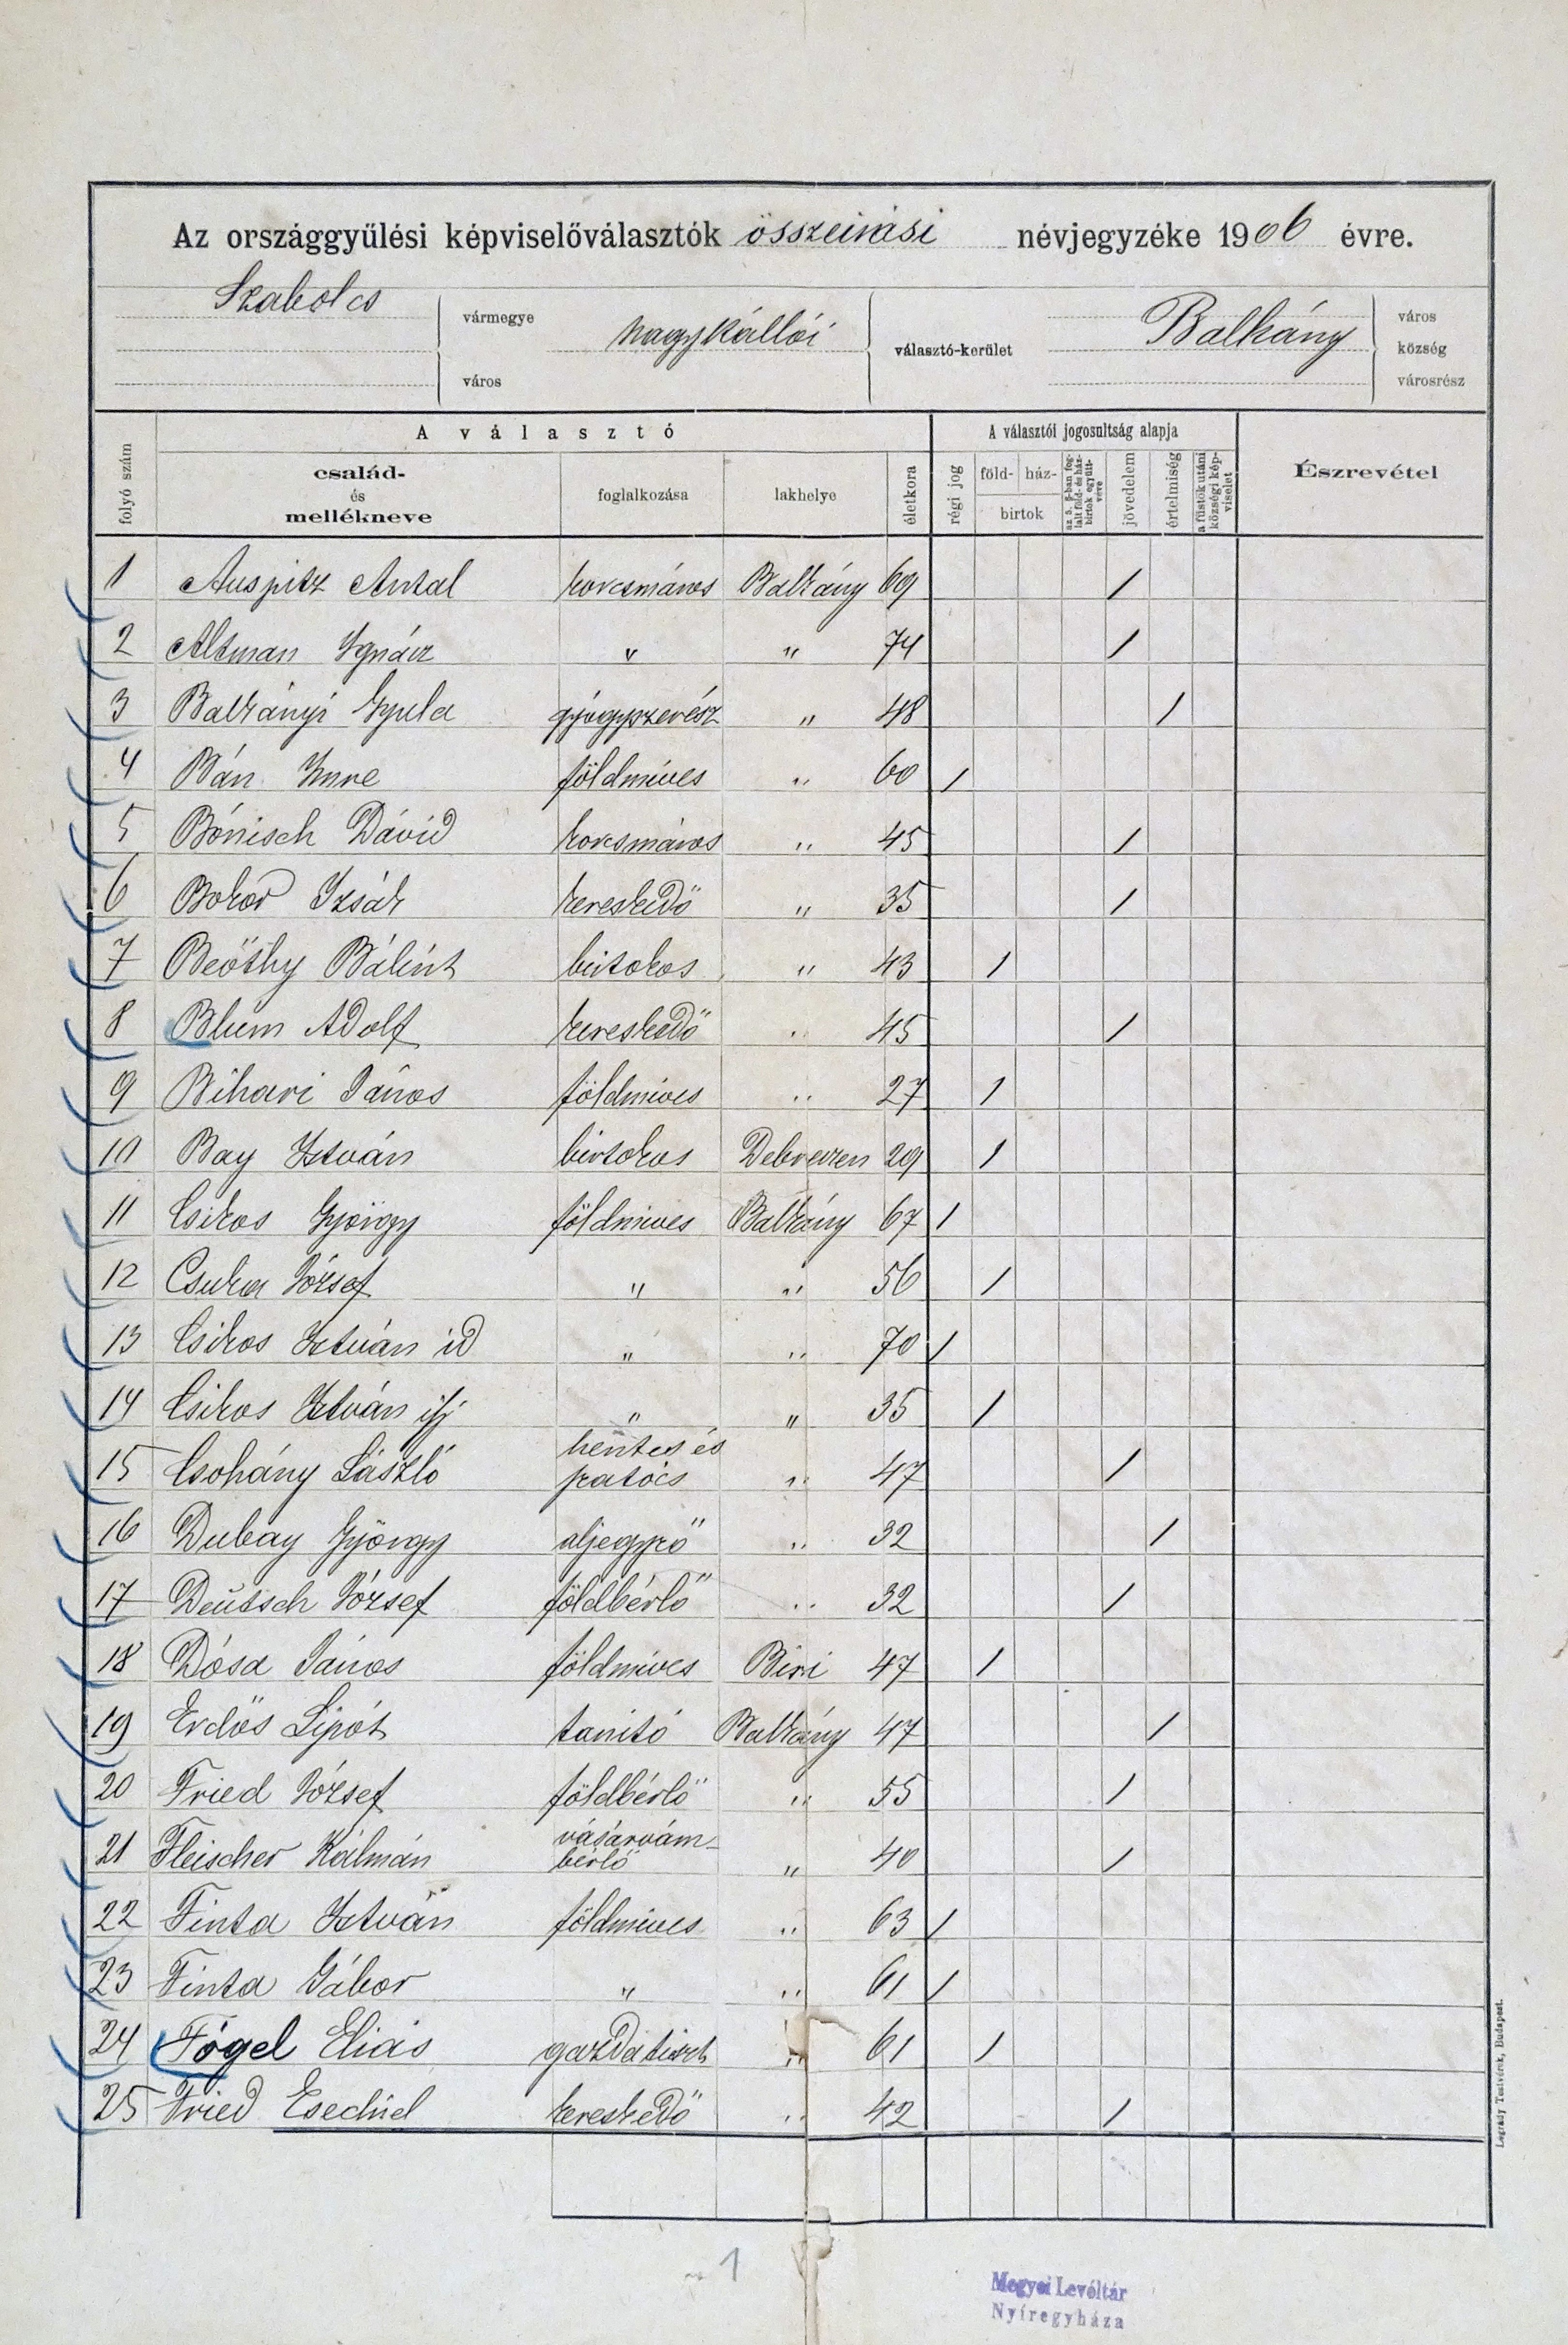 Az országgyűlési képviselőválasztók összeirási névjegyzéke 1906 évre.
Szabolcs vármegye város
nagykállói választó-kerület
Balkány város község városrész
folyó szám
A választó
család- és mellékneve
foglalkozása
lakhelye
életkora
A választói jogosultság alapja
régi jog
föld- ház- birtok
jövedelem
értelmiség
a füstök utáni községi képviselet
Észrevétel
1 Auspitz Antal korcsmáros Balkány 69 /
2 Altman Ignácz " " 74 /
3 Balkányi Gyula gyógyszerész " 48 /
4 Bán Imre földmives " 60 /
5 Bónisch Dávid korcsmáros " 45 /
6 Bokor Izsák kereskedő " 35 /
7 Beőthy Bálint birtokos " 43 /
8 Blum Adolf kereskedő " 45 /
9 Bihari János földmives " 27 /
10 Bay István birtokos Debreczen 29 /
11 Csikos György földmives Balkány 67 /
12 Csuka József " " 56 /
13 Csikos István id " " 70 /
14 Csikos István ifj " " 35 /
15 Csohány László hentes és szatócs " 47 /
16 Dubay György aljegyző " 32 /
17 Deutsch József földbérlő " 32 /
18 Dósa János földmives Biri 47 /
19 Erdős Lipót tanitó Balkány 47 /
20 Fried József földbérlő " 55 /
21 Fleischer Kálmán vásárvám- bérlő " 40 /
22 Finta István földmives " 63 /
23 Finta Gábor " " 61 /
24 Fögel Eliás gazdatiszt " 61 /
25 Fried Esechiel kereskedő " 42 /
Légrády Testvérek, Budapest.
1
Megyei Levéltár
Nyíregyháza